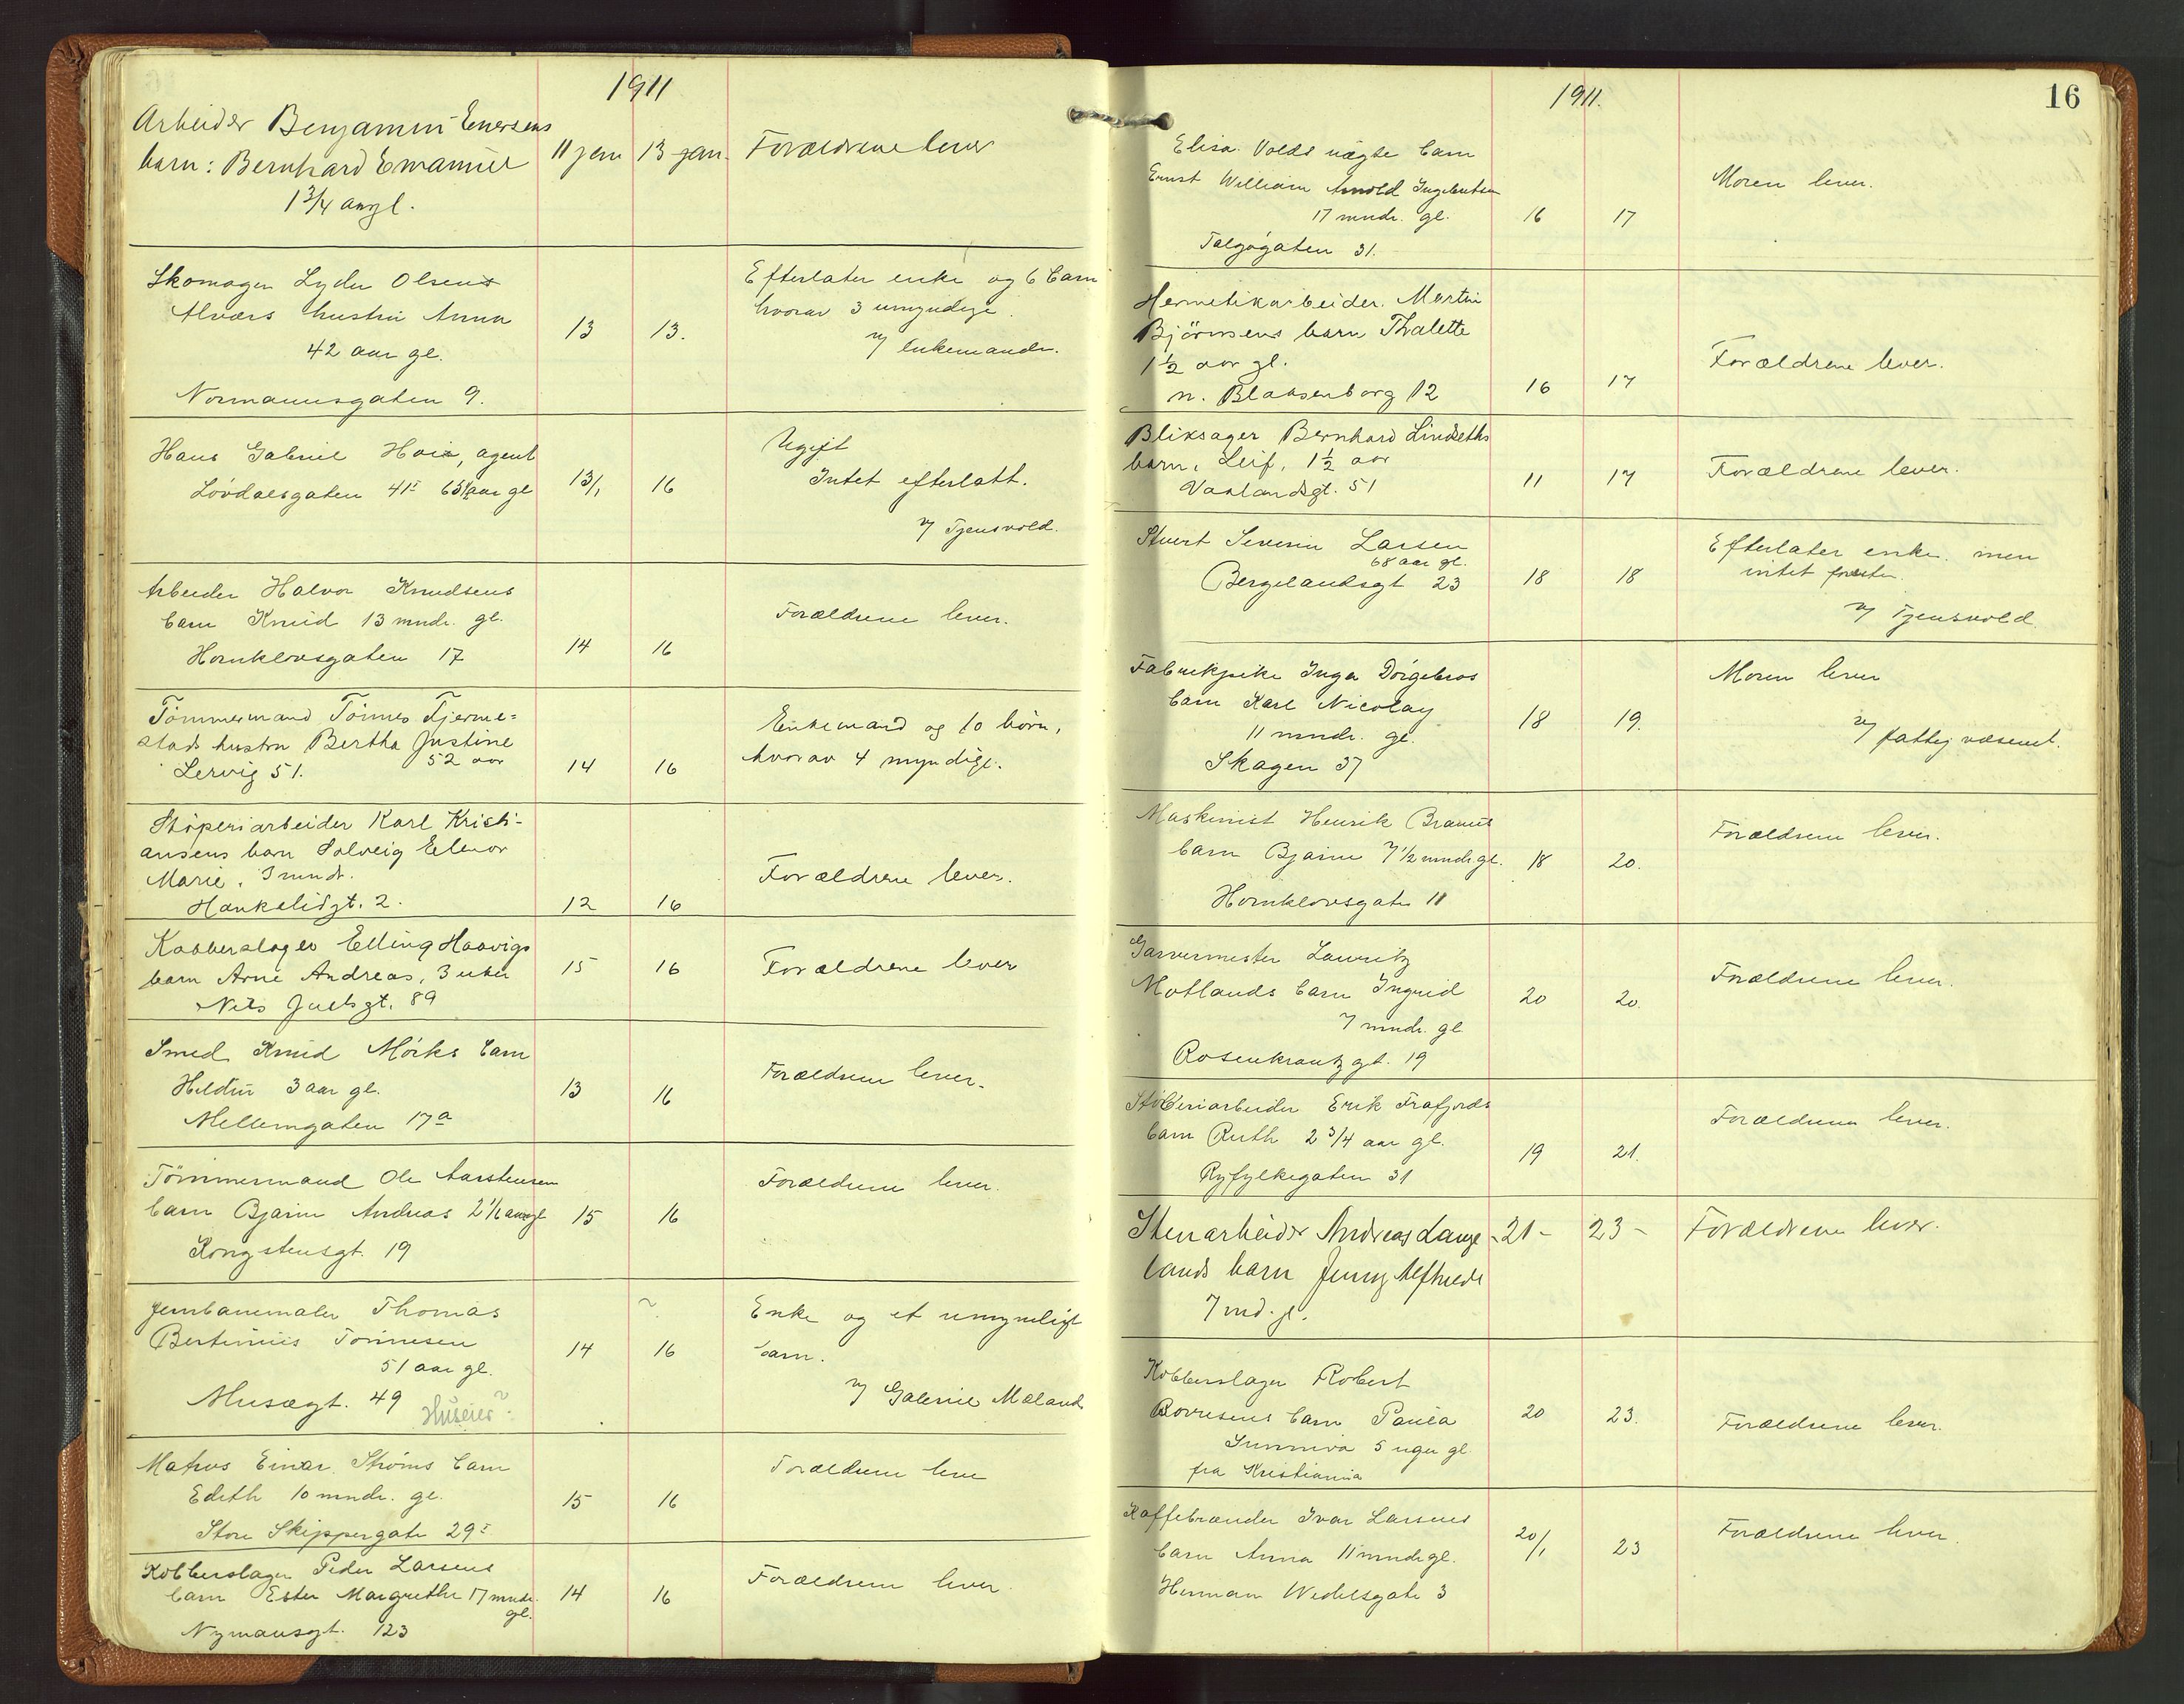 1911
Arbeider Benjamin Enersens
barn: Bernhard Emanuel 11 jan 13 jan. Forældrene lever
1 3/4 aar gl.
Skomager Lyder Olsens
Alværs hustru Anna 13 13. Efterlater enke og 6 barn
42 aar gl. hvorav 3 umyndige.
Normannsgaten 9. v/ enkemanden.
Hans Gabriel Hoie, agent Ugift
Lövdalsgaten 41I aar gl 13/1 16 Intet efterlatt.
v/ Tjensvold.
Arbeider Halvor Knudsens
barn Knud 13 mndr. gl. Forældrene lever.
Hornklovsgaten 17 14 16
Tömmermand Tönnes Tjerme=
stads hustru Bertha Justine Enkemand og 10 börn,
52 aar hvorav 4 myndige.
Lervig 51. 14 16
Stöperiarbeider Karl Kristi-
ansens barn Solveig Elenor
Marie, 3 mndr. Forældrene lever.
Haukeligt. 2. 12 16
Kobberslager Elling Haavigs
barn Arne Andreas, 3 uker 15 16 Forældrene lever
Nils Juelsgt. 89
Smed Knud Mörks barn
Heldur 3 aar gl. 13 16 Forældrene lever.
Mellemgaten 17a
Tömmermand Ole Aarstensen
barn Bjarne Andreas aar gl 15 16 Forældrene lever.
Kongstensgt. 19
Jernbanemaler Thomas Enke og et umyndigt
Bertinius Tönnesen 14 16 barn.
51 aar gl.
Musægt. 49 Huseier? v/ Gabriel Mæland
Matros Einar Ströms barn
Edith 10 mndr. gl. 15 16 Forældrene leve
Store Skippergate 29I
Kobberslager Peder Larsens
barn Ester Margrethe 17 mndr. gl. 14 16 Forældrene lever.
Nymansgt. 123
16
1911.
Elisa Volds uægte barn
Ernst William Arnold Ingebretsen Moren lever.
17 mndr. gl. 16 17
Talgögaten 31.
Hermetikarbeider Martin
Björnsens barn Thalette
1 1/2 aar gl. Forældrene lever.
n. Blaasenborg 12 16 17
Bliksager Bernhard Lindseths
barn, Leif, 1 1/2 aar 11 17 Forældrene lever.
Vaalandsgt. 51
Stuert Severin Larsen Efterlater enke men
68 aar gl. intet forresten.
Bergelandsgt 23 18 18 v/ Tjensvold
Fabrikpike Inga Dörgebros Moren lever
barn Karl Nicolay 18 19. v/ fattigvæsenet.
11 mndr. gl.
Skagen 37
Maskinist Henrik Brauns
barn Bjarne 7 1/2 mndr. gl. 18 20. Forældrene lever.
Hornklovsgate 11
Garvermester Lauritz
Motlands barn Ingrid 20 20. Forældrene lever.
7 mndr. gl
Rosenkrantzgt. 19
Stöberiarbeider Erik Frafjords
barn Ruth 2 3/4 aar gl. 19 21. Forældrene lever.
Ryfylkegaten 31
Stenarbeider Andreas Lange - 21 - 23 - Forældrene lever.
lands barn Jenny Alfhilde
7 md. gl.
Kobberslager Robert
barn Paula 20 23. Forældrene lever.
Sunniva 5 uger gl.
fra Kristiania
Kaffebrænder Ivar Larsens
barn Anna 11 mndr gl. 20/1 23 Forældrene lever.
Herman Wedelsgate 3